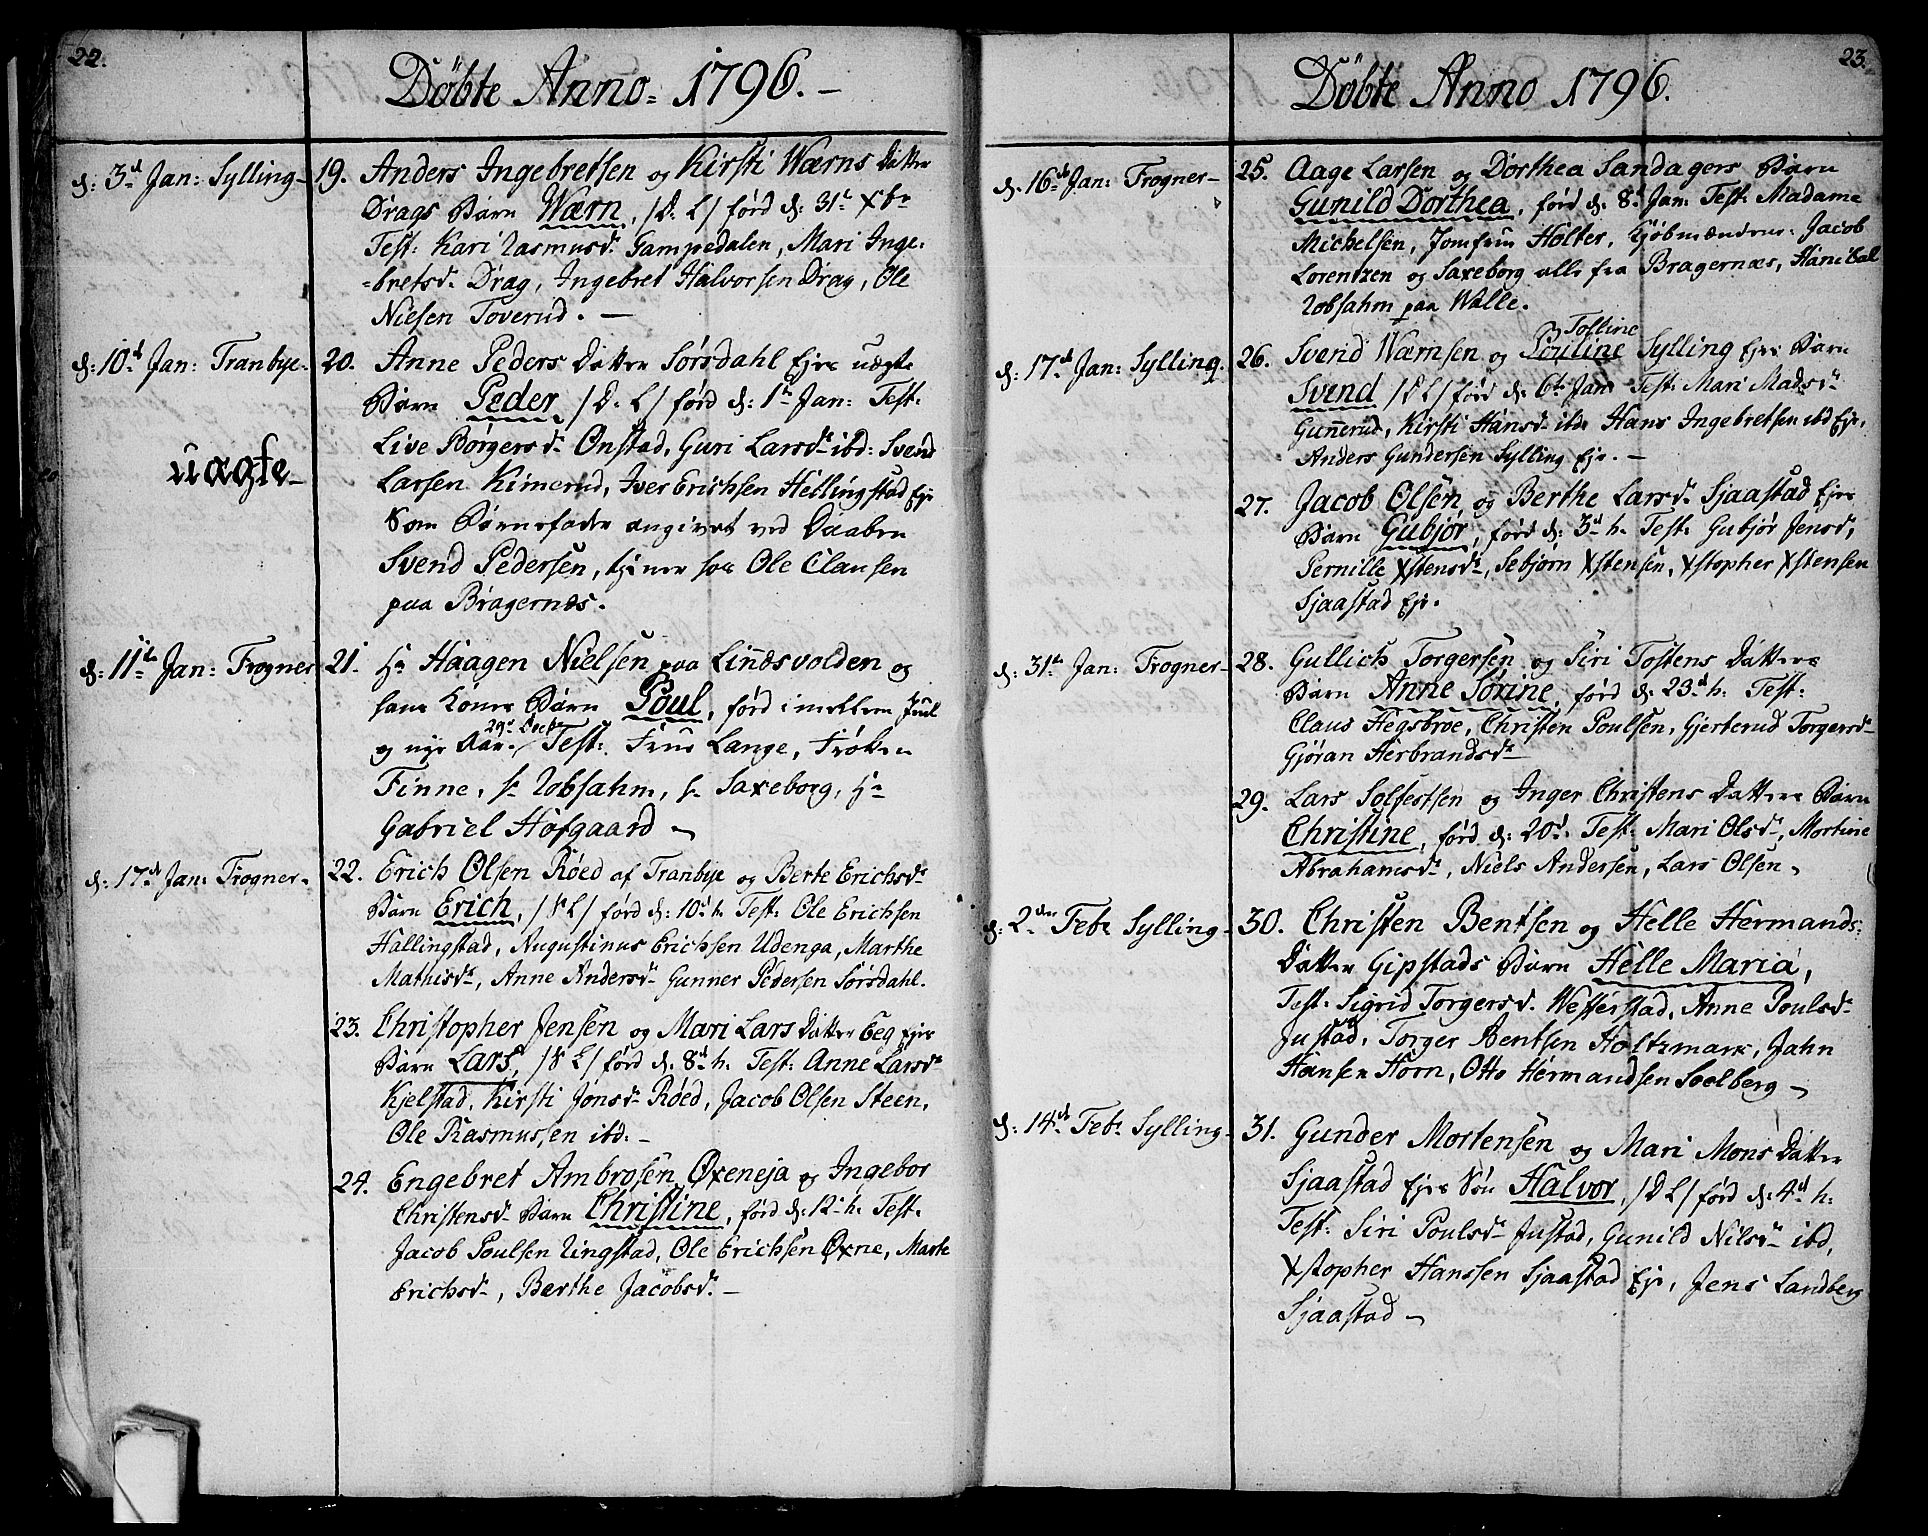 22.
Döbte Anno = 1796. —
d: 3d Jan: Sylling – 19. Anders Ingebretsen og Kirsti Wærns Datter
Drags Barn Wærn, /D. L/ förd d: 31t Xbr
Test: Kari Rasmusd. Gampedalen, Mari Inge-
-bretsd. Drag, Ingebret Halvorsen Drag, Ole
Nielsen Toverud. —
d: 10d Jan: Tranbye. 20. Anne Peders Datter Sörsdahl Ejes uægte
Barn Peder /D. L/ förd d: 1t Jan: Test:
uægte – Live Börgersd. Onstad, Guri Larsd. ibd: Svend
Larsen Kimerud, Iver Erichsen Hellingstad Eje
Som Barnefader angivet ved Daaben
Svend Pedersen, tjener hos Ole Clausen
paa Bragernæs.
d: 11t Jan: Frogner 21. Hr Haagen Nielsen paa Linnæsvolden og
hans Kones Barn Poul, förd imellem Juul
og nye Aar, 29d Decbr Test: Frue Lange, Fröken
Finne, Hr Robsahm, Hr Saxeborg, Hr
Gabriel Hofgaard –
d: 17d Jan: Frogner – 22. Erich Olsen Röed af Tranbye og Berte Erichsd.
Barn Erich, /P L/ förd d: 10d h. Test: Ole Erichsen
Hallingstad, Augustinus Erichsen Udenga, Marthe
Mathisd., Anne Andersd. Gunner Pedersen Sörsdahl.
23. Christopher Jensen og Mari Lars Datter Eeg Ejes
Barn Lars, /P L/ förd d: 8d h. Test: Anne Larsd.
Kjelstad, Kirsti Jonsd. Röed, Jacob Olsen Steen,
Ole Rasmussen ibd: –
24. Engebret Ambrosen Oxeneja og Ingebor
Christensd. Barn Christine, förd d: 12t h. Test:
Jacob Poulsen Ringstad, Ole Erichsen Oxne, Marte
Erichsd., Bærthe Jacobsd. –
23.
Döbte Anno 1796.
d. 16d Jan: Frogner – 25. Aage Larsen og Dorthea Sandagers Barn
Gunild Dorthea, förd d: 8d Jan: Test: Madame
Michelsen, Jomfrue Holter, Kjöbmændene: Jacob
Lorentzen og Saxeborg alle fra Bragernæs, Hanibal
Robsahm paa Walle.
Tolline
d: 17d Jan: Sylling. 26. Svend Wærnsen og Pouline Sylling Ejes Barn
Svend /D L/ förd d: 6t Jan Test: Mari Madsd.
Gunnerud, Kirsti Hansd. ibd. Hans Ingebretsen ibd Eje,
Anders Gundersen Sylling Eje. –
27. Jacob Olsen og Berthe Larsd. Sjaastad Ejes
Barn Gubjör, förd d: 3d h. Test: Gubjör Jensd,
Pernille Xstensd., Sebjörn Xstensen, Xstopher Xstensen
Sjaastad Eje.
d: 31t Jan: Frogner – 28. Gullich Torgersen og Siri Tostens Datters
Barn Anne Sörine, förd d: 23d h. Test:
Claus Hegsbroe, Christen Poulsen, Gjerterud Torgersd.
Gjöran Herbrandsd.
29. Lars Solfestsen og Inger Christens Datters Barn
Christine, förd d: 20d. Test: Mari Olsd., Mortine
Abrahamsd., Niels Andersen, Lars Olsen.
d: 2den Febr Sylling – 30. Christen Bentsen og Helle Hermands:
Datter Gipstads Barn Helle Maria,
Test: Sigrid Torgersd. Westerstad, Anne Poulsd.
Justad, Torger Bentsen Holtzmark, Jahn
Hansen Horn, Otto Hermandsen Soelberg –
d: 14d Febr Sylling – 31. Gunder Mortensen og Mari Mons Datter
Sjaastad Ejes Sön Halvor, /D L/ förd d: 4d h:
Test: Siri Poulsd. Justad, Gunild Nilsd. ibd,
Xstopher Hanssen Sjaastad Eje, Jens Landberg
Sjaastad –